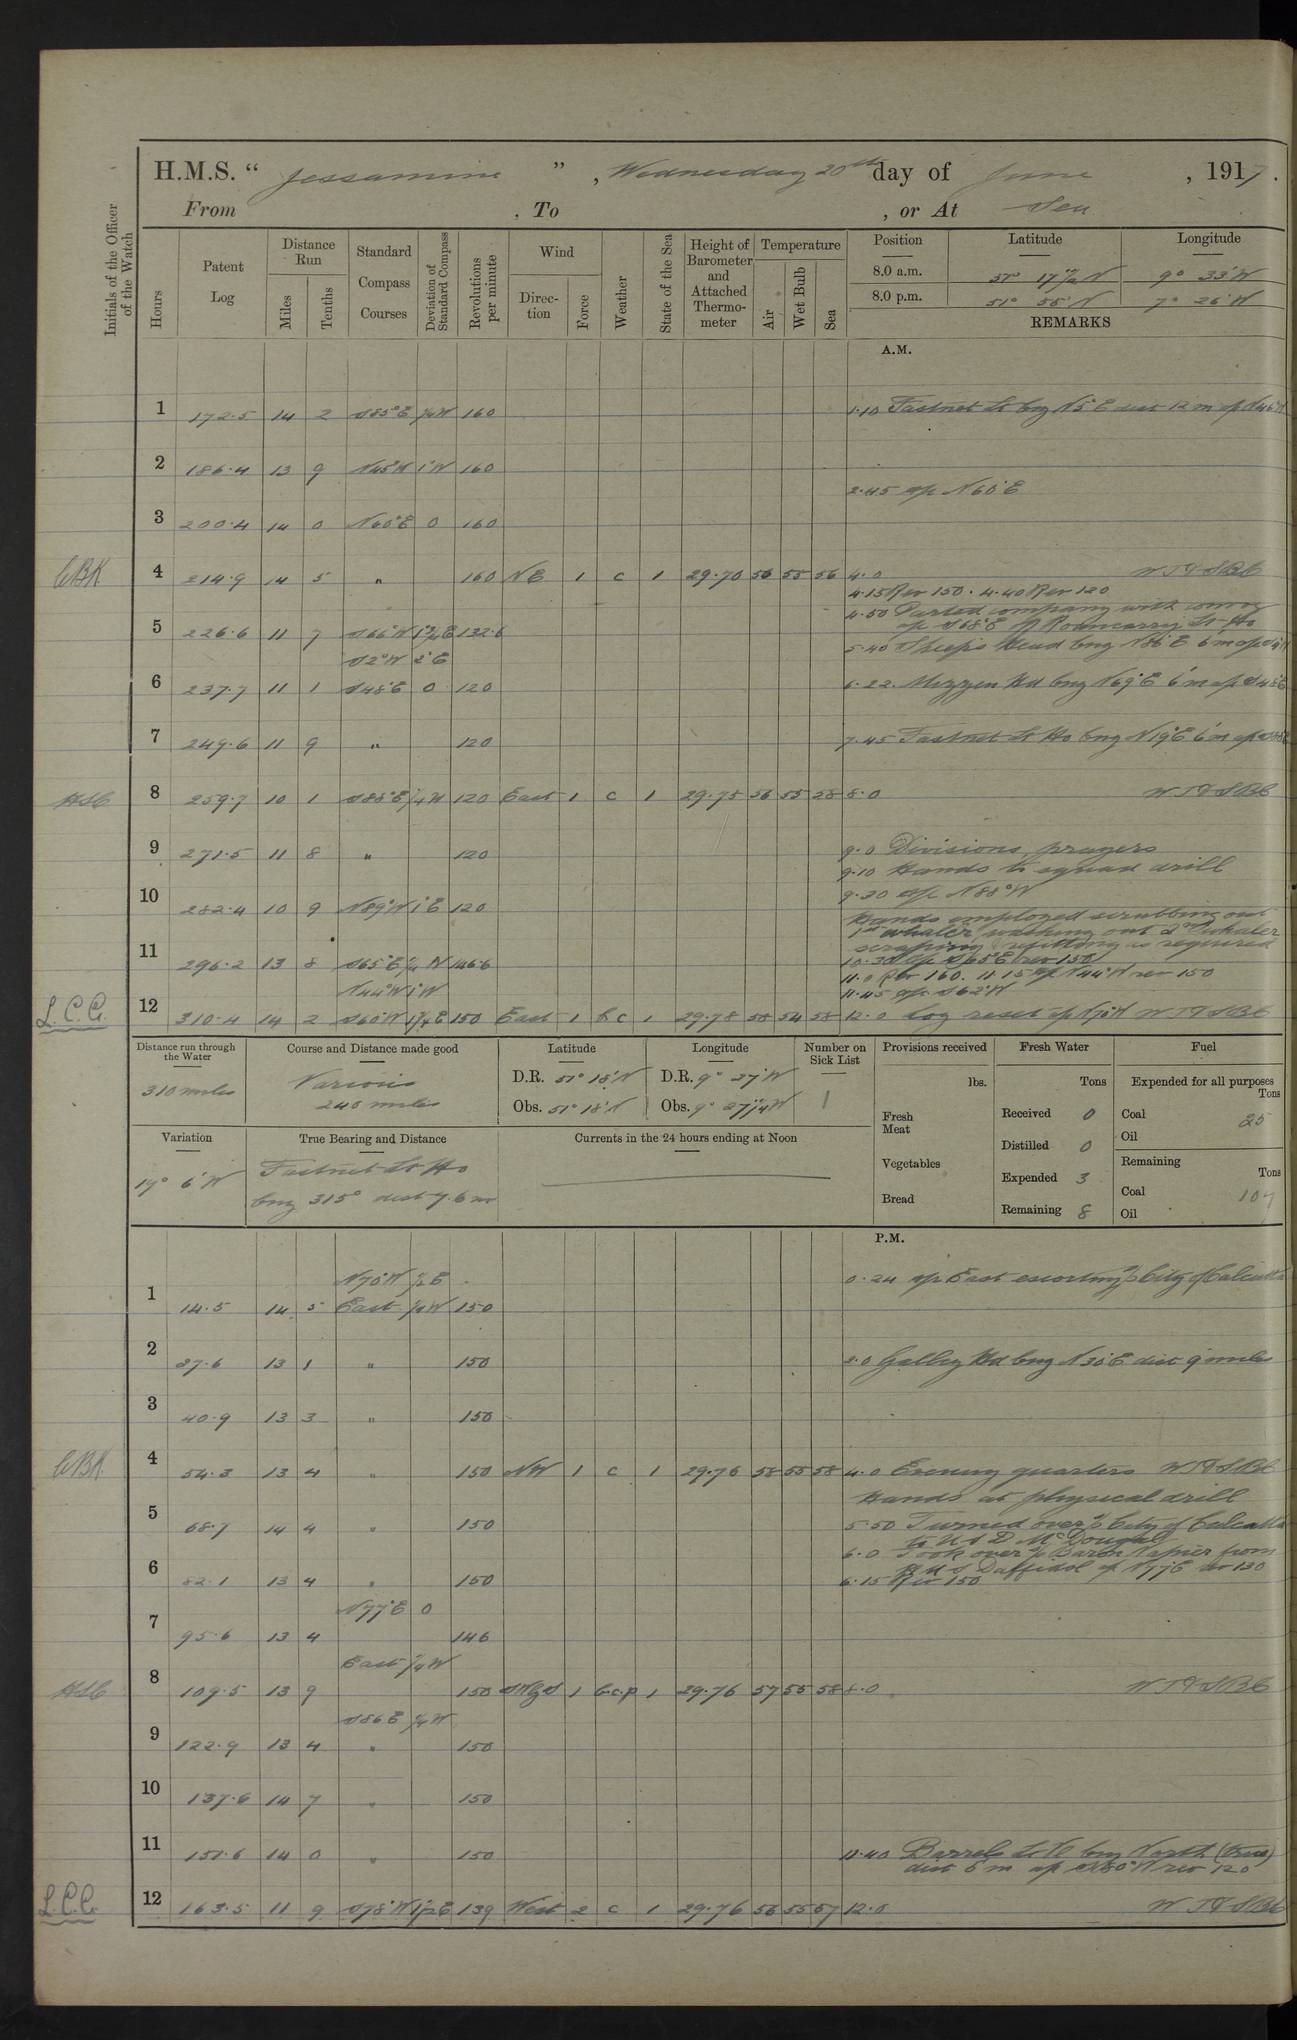 H.M.S. “ Jessamine ” , Wednesday 20th day of June , 1917.
From , To , or At Sea
Initials of the Officer of the Watch
Hours
Patent Log
Distance Run
Miles
Tenths
Standard Compass Courses
Deviation of Standard Compass
Revolutions per minute
Wind
Direc-tion
Force
Weather
State of the Sea
Height of Barometer and Attached Thermo-meter
Temperature
Air
Wet Bulb
Sea
Position Latitude Longitude
8.0 a.m. 51° 17½' N 9° 33' W
8.0 p.m. 51° 55' N 7° 26' W
REMARKS
A.M.
1 172.5 14 2 S85°E ¼W 160 1.10 Fastnet Lt brg N5°E dist 12 m a/c N45°W
2 186.4 13 9 N45°W 1°W 160
2.45 a/c N60°E
3 200.4 14 0 N60°E 0 160
CBK 4 214.9 14 5 " 160 NE 1 c 1 29.70 56 55 56 4.0 W T & S B C
4.15 Rev 150. 4.40 Rev 120
4.50 Parted company with convoy
a/c S68°E Roancarrig Lt Ho
5 226.6 11 7 S66°W 1¾E 132.6
5.40 Sheep's Head brg N86°E 6' m
S2°W 2°E
6 237.7 11 1 S48°E 0 120 6.22 Mizzen Hd brg N69°E 6' m a/c S48°E
7 249.6 11 9 " 120 7.45 Fastnet Lt Ho brg N19°E 6' m
HSC 8 259.7 10 1 S88°E ¼W 120 East 1 c 1 29.75 56 55 58 8.0 W T & S B C
9 271.5 11 8 " 120 9.0 Divisions, prayers
9.10 Hands to squad drill
9.30 a/c N88°W
10 282.4 10 9 N89°W 1°E 120
Hands employed scrubbing out
1st whaler washing out 2nd whaler
scraping refitting as required
10.30 a/c S65°E rev 150
11 296.2 13 8 S65°E ¼W 146.6
11.0 Rev 160. 11.15 a/c N44°W rev 150
N44°W 1°W
11.45 a/c S62°W
L.C.C. 12 310.4 14 2 S60°W 1¾E 150 East 1 b.c 1 29.78 58 54 58 12.0 Log reset a/c N70°W W T & S B C
Distance run through the Water
310 miles
Course and Distance made good
Various
240 miles
Latitude
D.R. 51° 18' N
Obs. 51° 18' N
Longitude
D.R. 9° 27' W
Obs. 9° 27¼' W
Number on Sick List
1
Provisions received
lbs.
Fresh Meat
Vegetables
Bread
Fresh Water
Tons
Received 0
Distilled 0
Expended 3
Remaining 8
Fuel
Expended for all purposes
Tons
Coal 25
Oil
Remaining
Tons
Coal 107
Oil
Variation
19° 6' W
True Bearing and Distance
Fastnet Lt Ho
brg 315° dist 7.6 m
Currents in the 24 hours ending at Noon
P.M.
N70°W ½E 0.24 a/c East escorting S/S City of Calcutta
1 14.5 14 5 East ¼W 150
2 27.6 13 1 " 150 2.0 Galley Hd brg N30°E dist 9 miles
3 40.9 13 3 " 150
CBK 4 54.3 13 4 " 150 NW 1 c 1 29.76 58 55 58 4.0 Evening quarters W T & S B C
Hands at physical drill
5 68.7 14 4 " 150 5.50 Turned over S/S City of Calcutta
to U S D McDougal
6.0 Took over S/S Baron Napier from
H M S Daffodil a/c N77°E rev 130
6 82.1 13 4 " 150 6.15 Rev 150
N77°E 0
7 95.6 13 4 146
East ¼W
HSC 8 109.5 13 9 150 SWbyS 1 b.c.p 1 29.76 57 55 58 8.0 W T & S B C
S86E ¼W
9 122.9 13 4 " 150
10 137.6 14 7 " 150
11 151.6 14 0 " 150 11.40 Barrels Lt V brg North (true)
dist 5 m a/c rev 120
L.C.C. 12 163.5 11 9 S78°W 1½E 139 West 2 c 1 29.76 56 55 57 12.0 W T & S B C